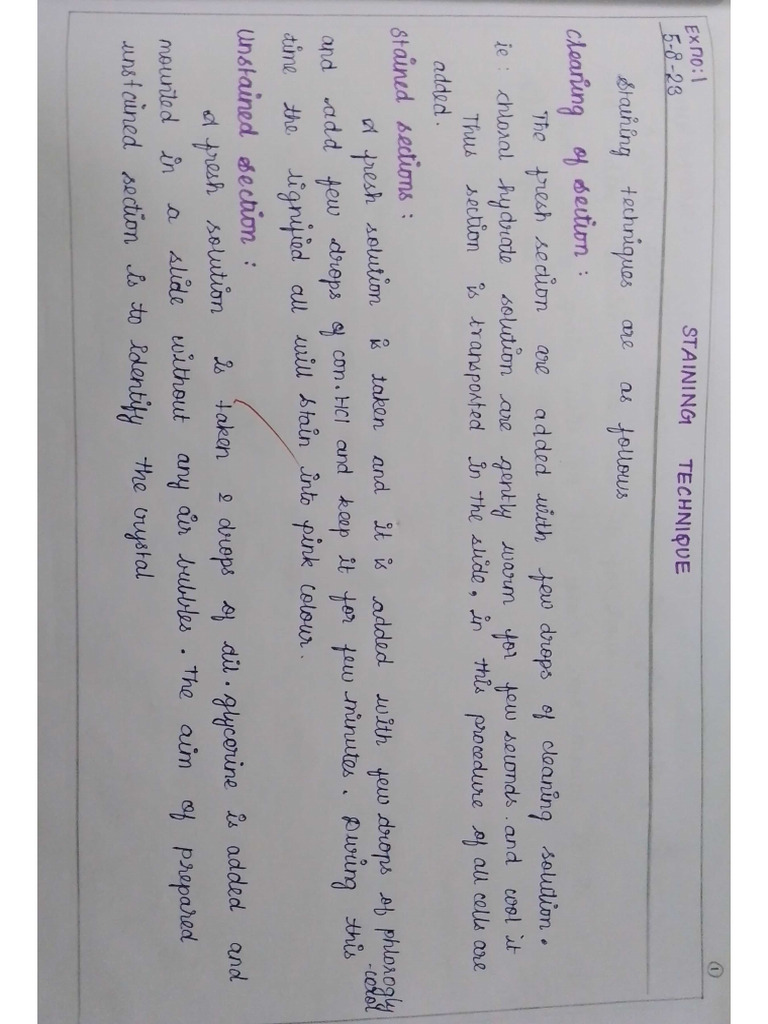 ①
EX NO: 1
5-8-23
STAINING TECHNIQUE
Staining techniques are as follows
Cleaning of section :
The fresh section are added with few drops of cleaning solution.
ie: chloral hydrate solution are gently warm for few seconds. and cool it
Thus section is transposted in the slide, in this procedure of all cells are
added.
Stained sections :
A fresh solution is taken and it is added with few drops of phlorogly
-cerol
and add few drops of con. HCl and keep it for few minutes. During this
time the lignified all will stain into pink colour.
Unstained section :
A fresh solution is taken 2 drops of dil. glycerine is added and
mounted in a slide without any air bubbles. The aim of prepared
unstained section is to identify the crystal